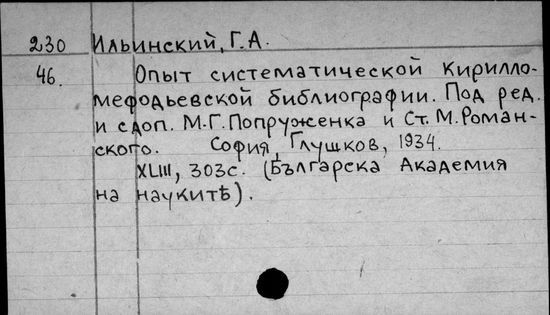 230 Ильинский, Г. А.
46. Опыт систематической Кирилло-
мефодьевской библиографии. Под ред.
и с доп. М.Г. Попруженка и Ст. М. Роман-
ского. София, Глушков, 1934.
XLIII, 303с. (Българска Академия
на наукитѣ).